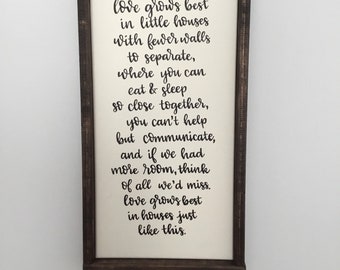 love grows best
in little houses
with fewer walls
to separate,
where you can
eat & sleep
so close together,
you can't help
but communicate,
and if we had
more room, think
of all we'd miss.
love grows best
in houses just
like this.